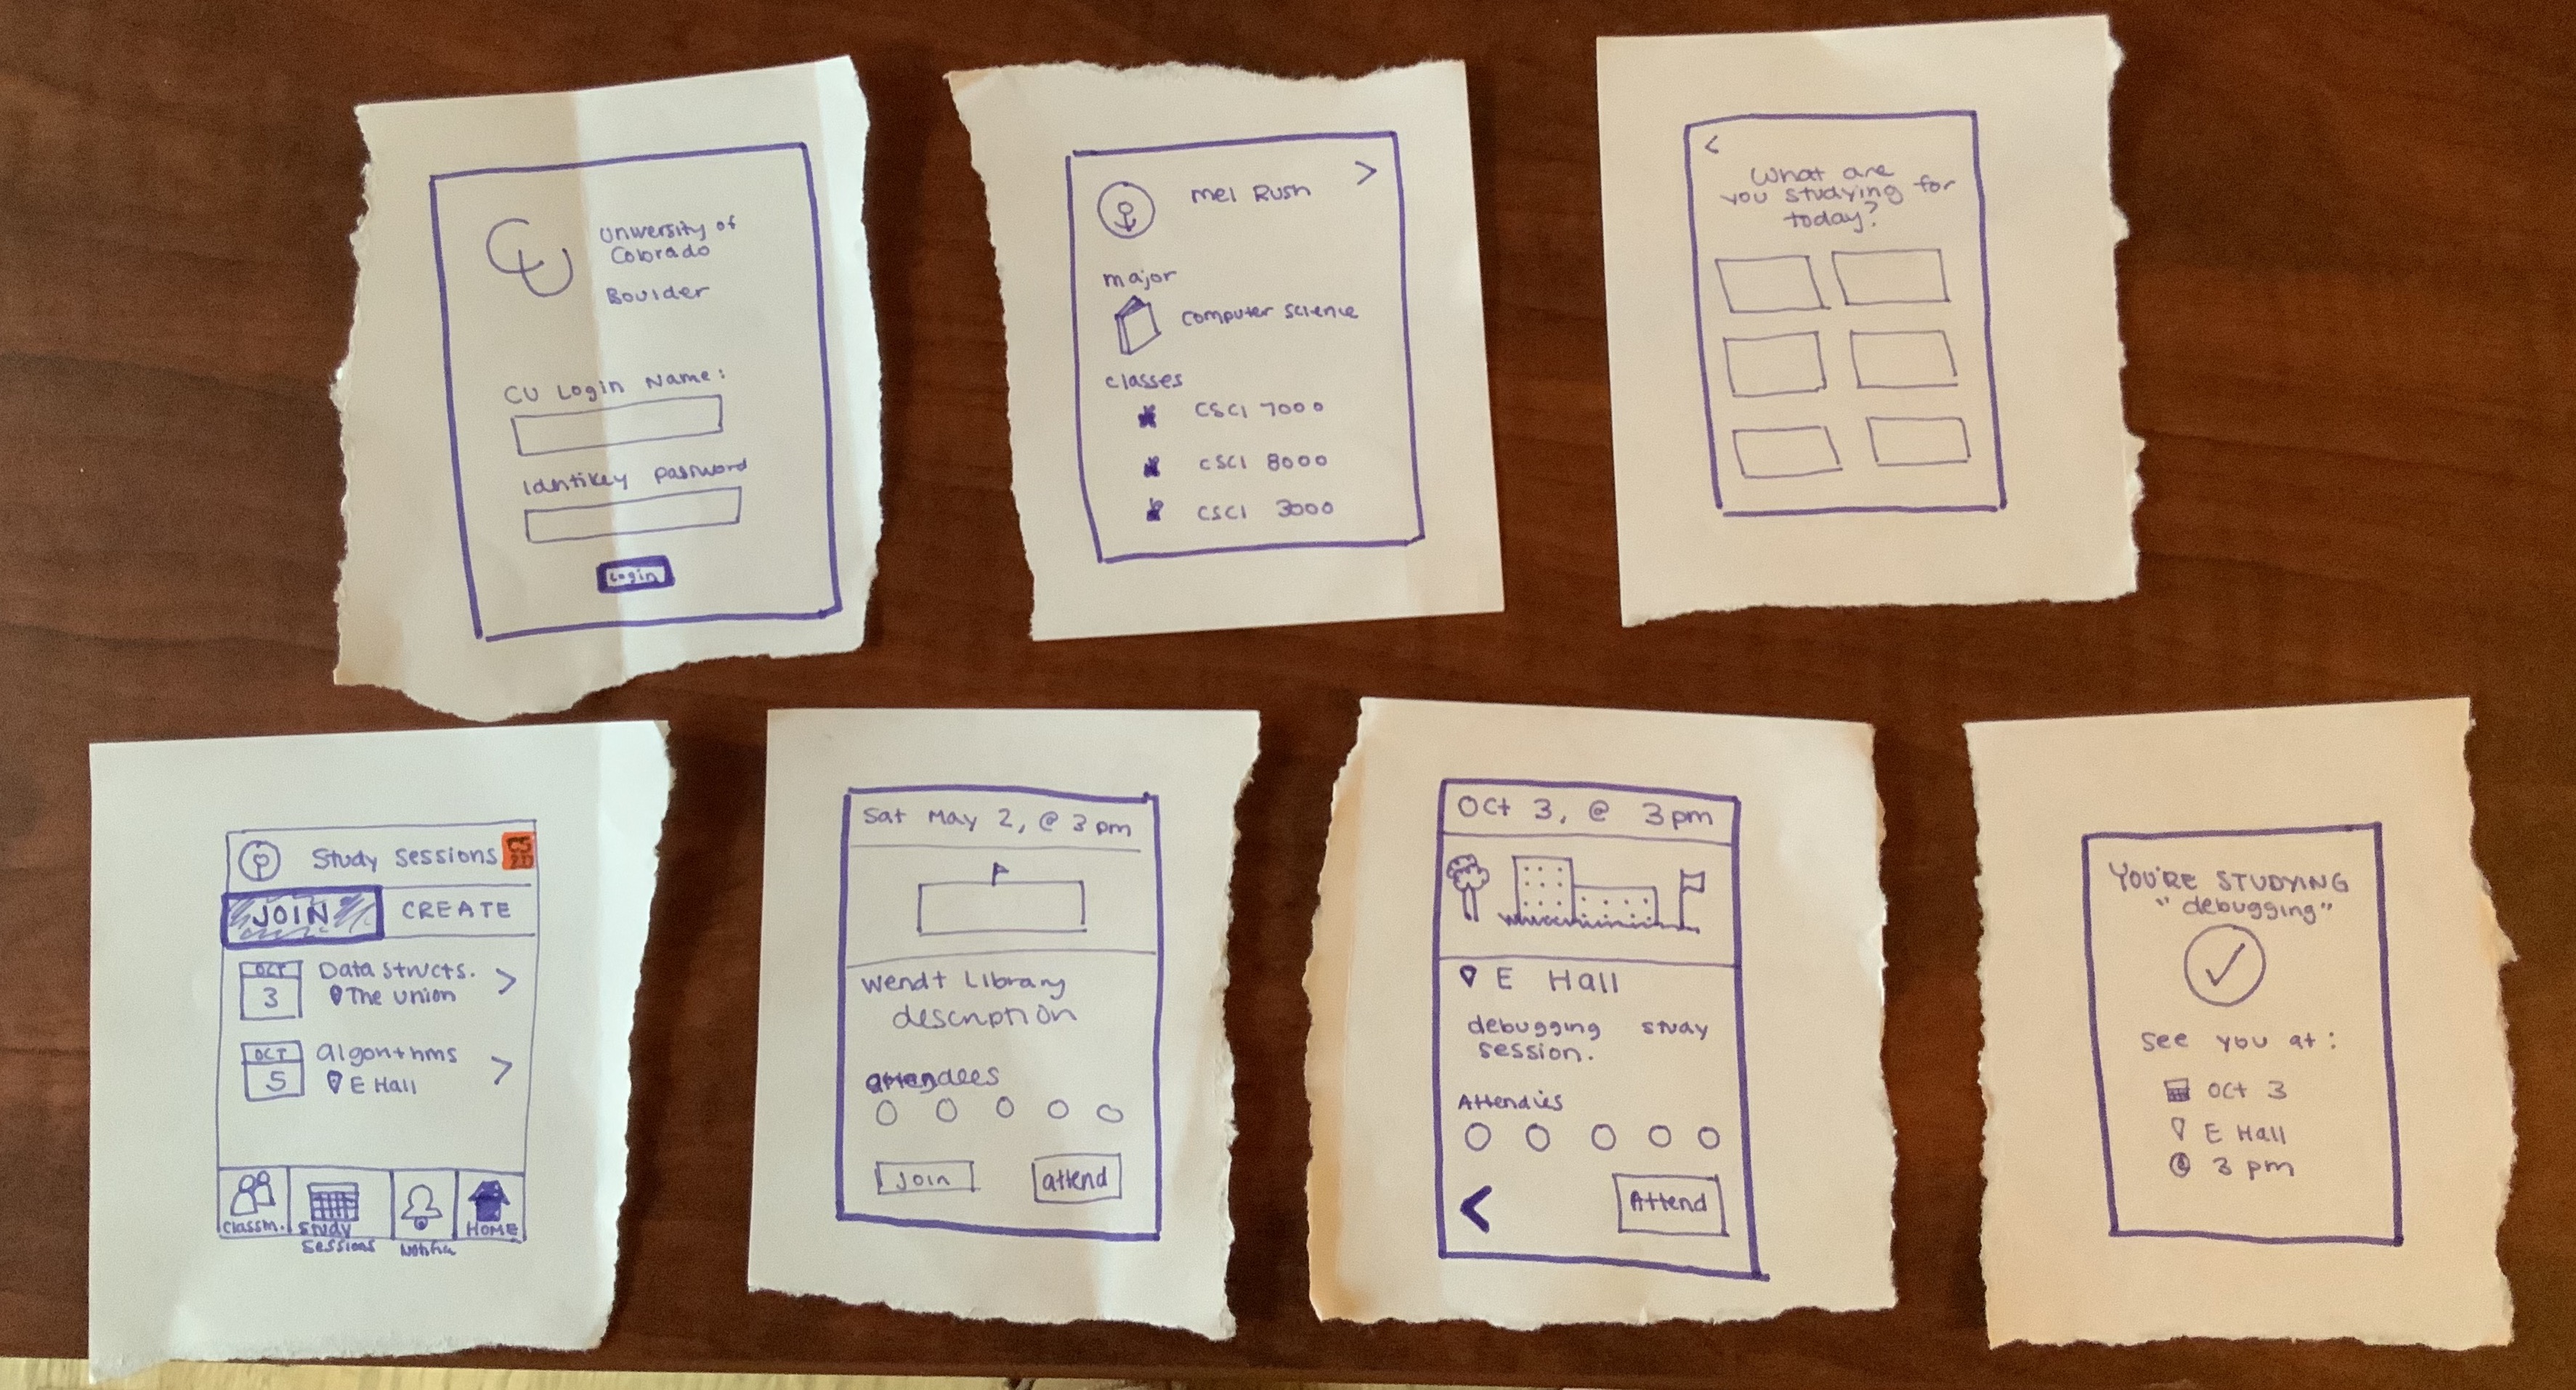 CU
University of
Colorado
Boulder
CU Login Name:
Identikey password
Login
>
Mel Rush
major
Computer Science
classes
CSCI 7000
CSCI 8000
CSCI 3000
<
What are
you studying for
today?
Study Sessions
CS
JOIN
CREATE
OCT
3
Data structs.
The Union
>
OCT
5
algorithms
E Hall
>
Classm.
Study
Sessions
Notifica
HOME
Sat May 2, @ 3pm
Wendt Library
description
attendees
Join
attend
Oct 3, @ 3pm
E Hall
debugging study
session.
Attendies
<
Attend
YOU'RE STUDYING
"debugging"
see you at:
Oct 3
E Hall
3 pm